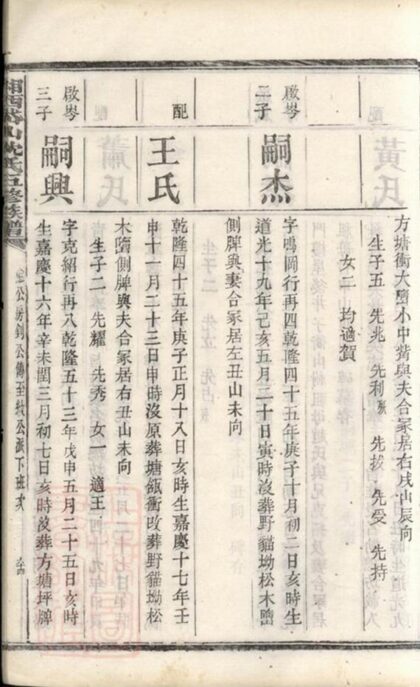 方塘衝大壟小中嘴與夫合冢居右戌山辰向
生子五 先兆 先利 先拔 先受 先持
女二 均適賀
啟岑
二子
嗣杰
字鳴岡行再四乾隆四十五年庚子十月初二日亥時生
道光十九年己亥五月二十日寅時沒葬野貓坳松木壟
側脾與妻合冢居左丑山未向
配
王氏
乾隆四十五年庚子正月十八日亥時生嘉慶十七年壬
申十一月二十三日申時沒原葬塘衝改葬野貓坳松
木壟側脾與夫合冢居右丑山未向
生子二 先耀 先秀 女一 適王
啟岑
三子
嗣興
字克紹行再八乾隆五十三年戊申五月二十五日亥時
生嘉慶十六年辛未閏三月初七日亥時沒葬方塘坪脾
公派下班次